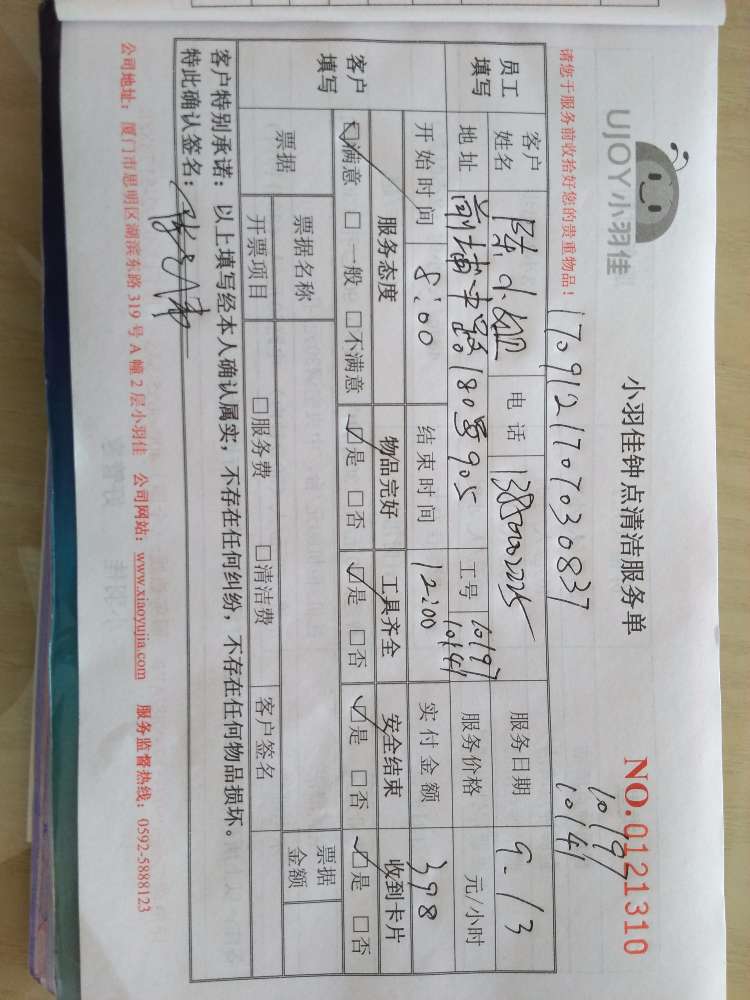 UJOY小羽佳
小羽佳钟点清洁服务单
NO.0121310
10197
10141
请您于服务前收拾好您的贵重物品！
1709121707030837
员工填写
客户姓名 陈小姐 电话 13850002225 服务日期 9.13
地址 前埔中路180号905 工号 10197 10141 服务价格 元/小时
开始时间 8:00 结束时间 12:00 实付金额 398
客户填写
服务态度 物品完好 工具齐全 安全结束 收到卡片
☑满意 □一般 □不满意 ☑是 □否 ☑是 □否 ☑是 □否 ☑是 □否
票据 票据名称 票据金额
开票项目 □服务费 □清洁费 客户签名
客户特别承诺：以上填写经本人确认属实，不存在任何纠纷，不存在任何物品损坏。
特此确认签名：
公司地址：厦门市思明区湖滨东路 319 号 A 幢 2 层小羽佳 公司网站：www.xiaoyujia.com 服务监督热线：0592-5888123